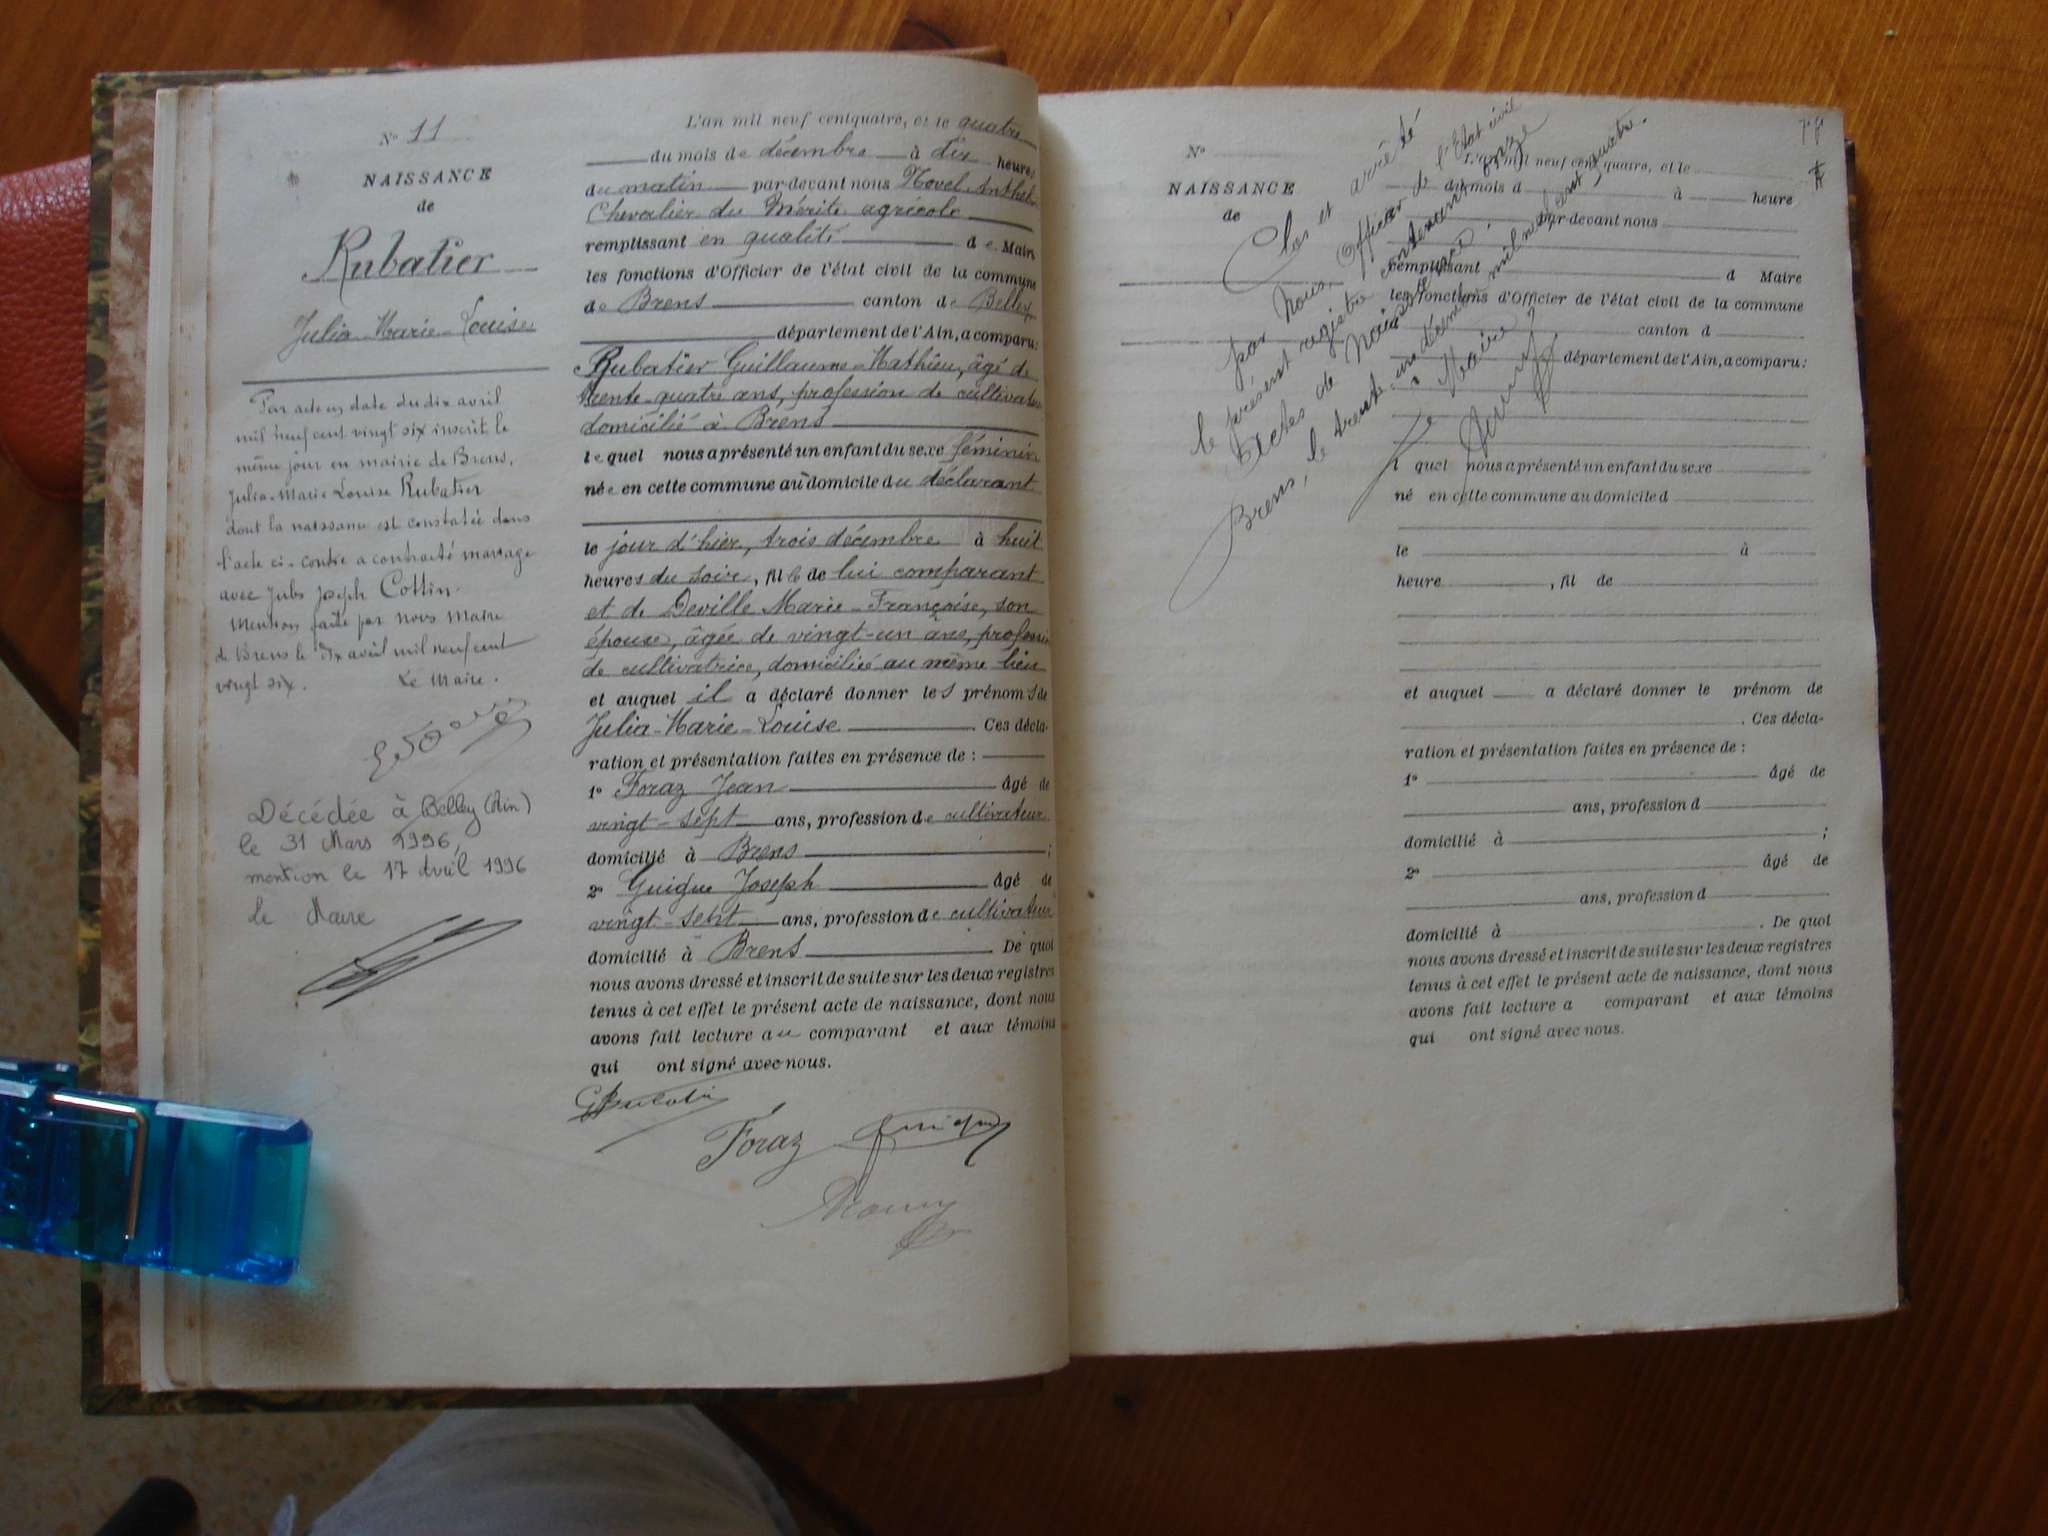 N° 11
NAISSANCE
de
Rubatier
Julia-Marie-Louise
Par acte en date du dix avril
mil neuf cent vingt six inscrit le
même jour en mairie de Brens,
Julia-Marie Louise Rubatier
dont la naissance est constatée dans
l'acte ci-contre a contracté mariage
avec Jules Joseph Cottin.
Mention faite par nous Maire
de Brens le dix avril mil neuf cent
vingt six. Le Maire.
Décédée à Belley (Ain)
le 31 Mars 1996,
mention le 17 Avril 1996
Le Maire
L'an mil neuf cent quatre, et le quatre
du mois de décembre à dix heures
du matin par devant nous Novel Anthel
Chevalier du Mérite agricole
remplissant en qualité de Maire
les fonctions d'Officier de l'état civil de la commune
de Brens canton de Belley
département de l'Ain, a comparu:
Rubatier Guillaume-Mathieu, âgé de
trente-quatre ans, profession de cultivateur
domicilié à Brens
lequel nous a présenté un enfant du sexe féminin
née en cette commune au domicile du déclarant
le jour d'hier, trois décembre à huit
heures du soir, fille de lui comparant
et de Deville Marie-Françoise, son
épouse, âgée de vingt-un ans, profession
de cultivatrice, domiciliée au même lieu
et auquel il a déclaré donner les prénoms de
Julia-Marie-Louise Ces décla-
ration et présentation faites en présence de :
1° Foraz Jean âgé de
vingt-sept ans, profession de cultivateur
domicilié à Brens ;
2° Guigue Joseph âgé de
vingt-sept ans, profession de cultivateur
domicilié à Brens De quoi
nous avons dressé et inscrit de suite sur les deux registres
tenus à cet effet le présent acte de naissance, dont nous
avons fait lecture au comparant et aux témoins
qui ont signé avec nous.
Foraz
N°
NAISSANCE
de
L'an mil neuf cent quatre, et le
du mois d à heure
par devant nous
remplissant d Maire
les fonctions d'Officier de l'état civil de la commune
canton d
département de l'Ain, a comparu:
l quel nous a présenté un enfant du sexe
né en cette commune au domicile d
le à
heure , fil de
et auquel a déclaré donner le prénom de
. Ces décla-
ration et présentation faites en présence de :
1° âgé de
ans, profession d
domicilié à ;
2° âgé de
ans, profession d
domicilié à . De quoi
nous avons dressé et inscrit de suite sur les deux registres
tenus à cet effet le présent acte de naissance, dont nous
avons fait lecture a comparant et aux témoins
qui ont signé avec nous.
Clos et arrêté
par Nous, Officier de l'Etat civil
le présent registre contenant onze
Actes de Naissance.
Brens, le trente-un décembre mil neuf cent quatre.
Le Maire